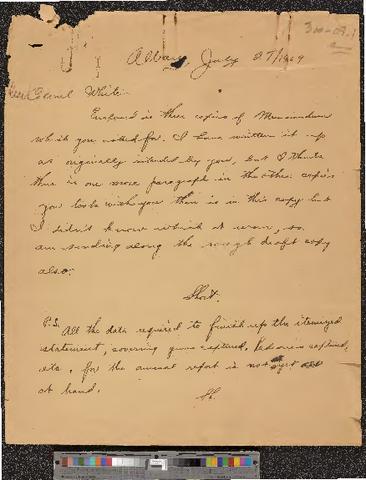 Albany July 27/1909
Lieut Colonel White:
Enclosed is three copies of Memorandum
which you asked for. I have written it up
as originally intended by you, but I think
there is one more paragraph in the other copies
you took with you than is in this copy but
I didn't know which it was, so
am sending along the rough draft copy
also.
Short.
P.S. All the data required to finish up the itemized
statement, covering guns captured, Pedoneros captured,
etc, for the annual report is not yet
at hand.